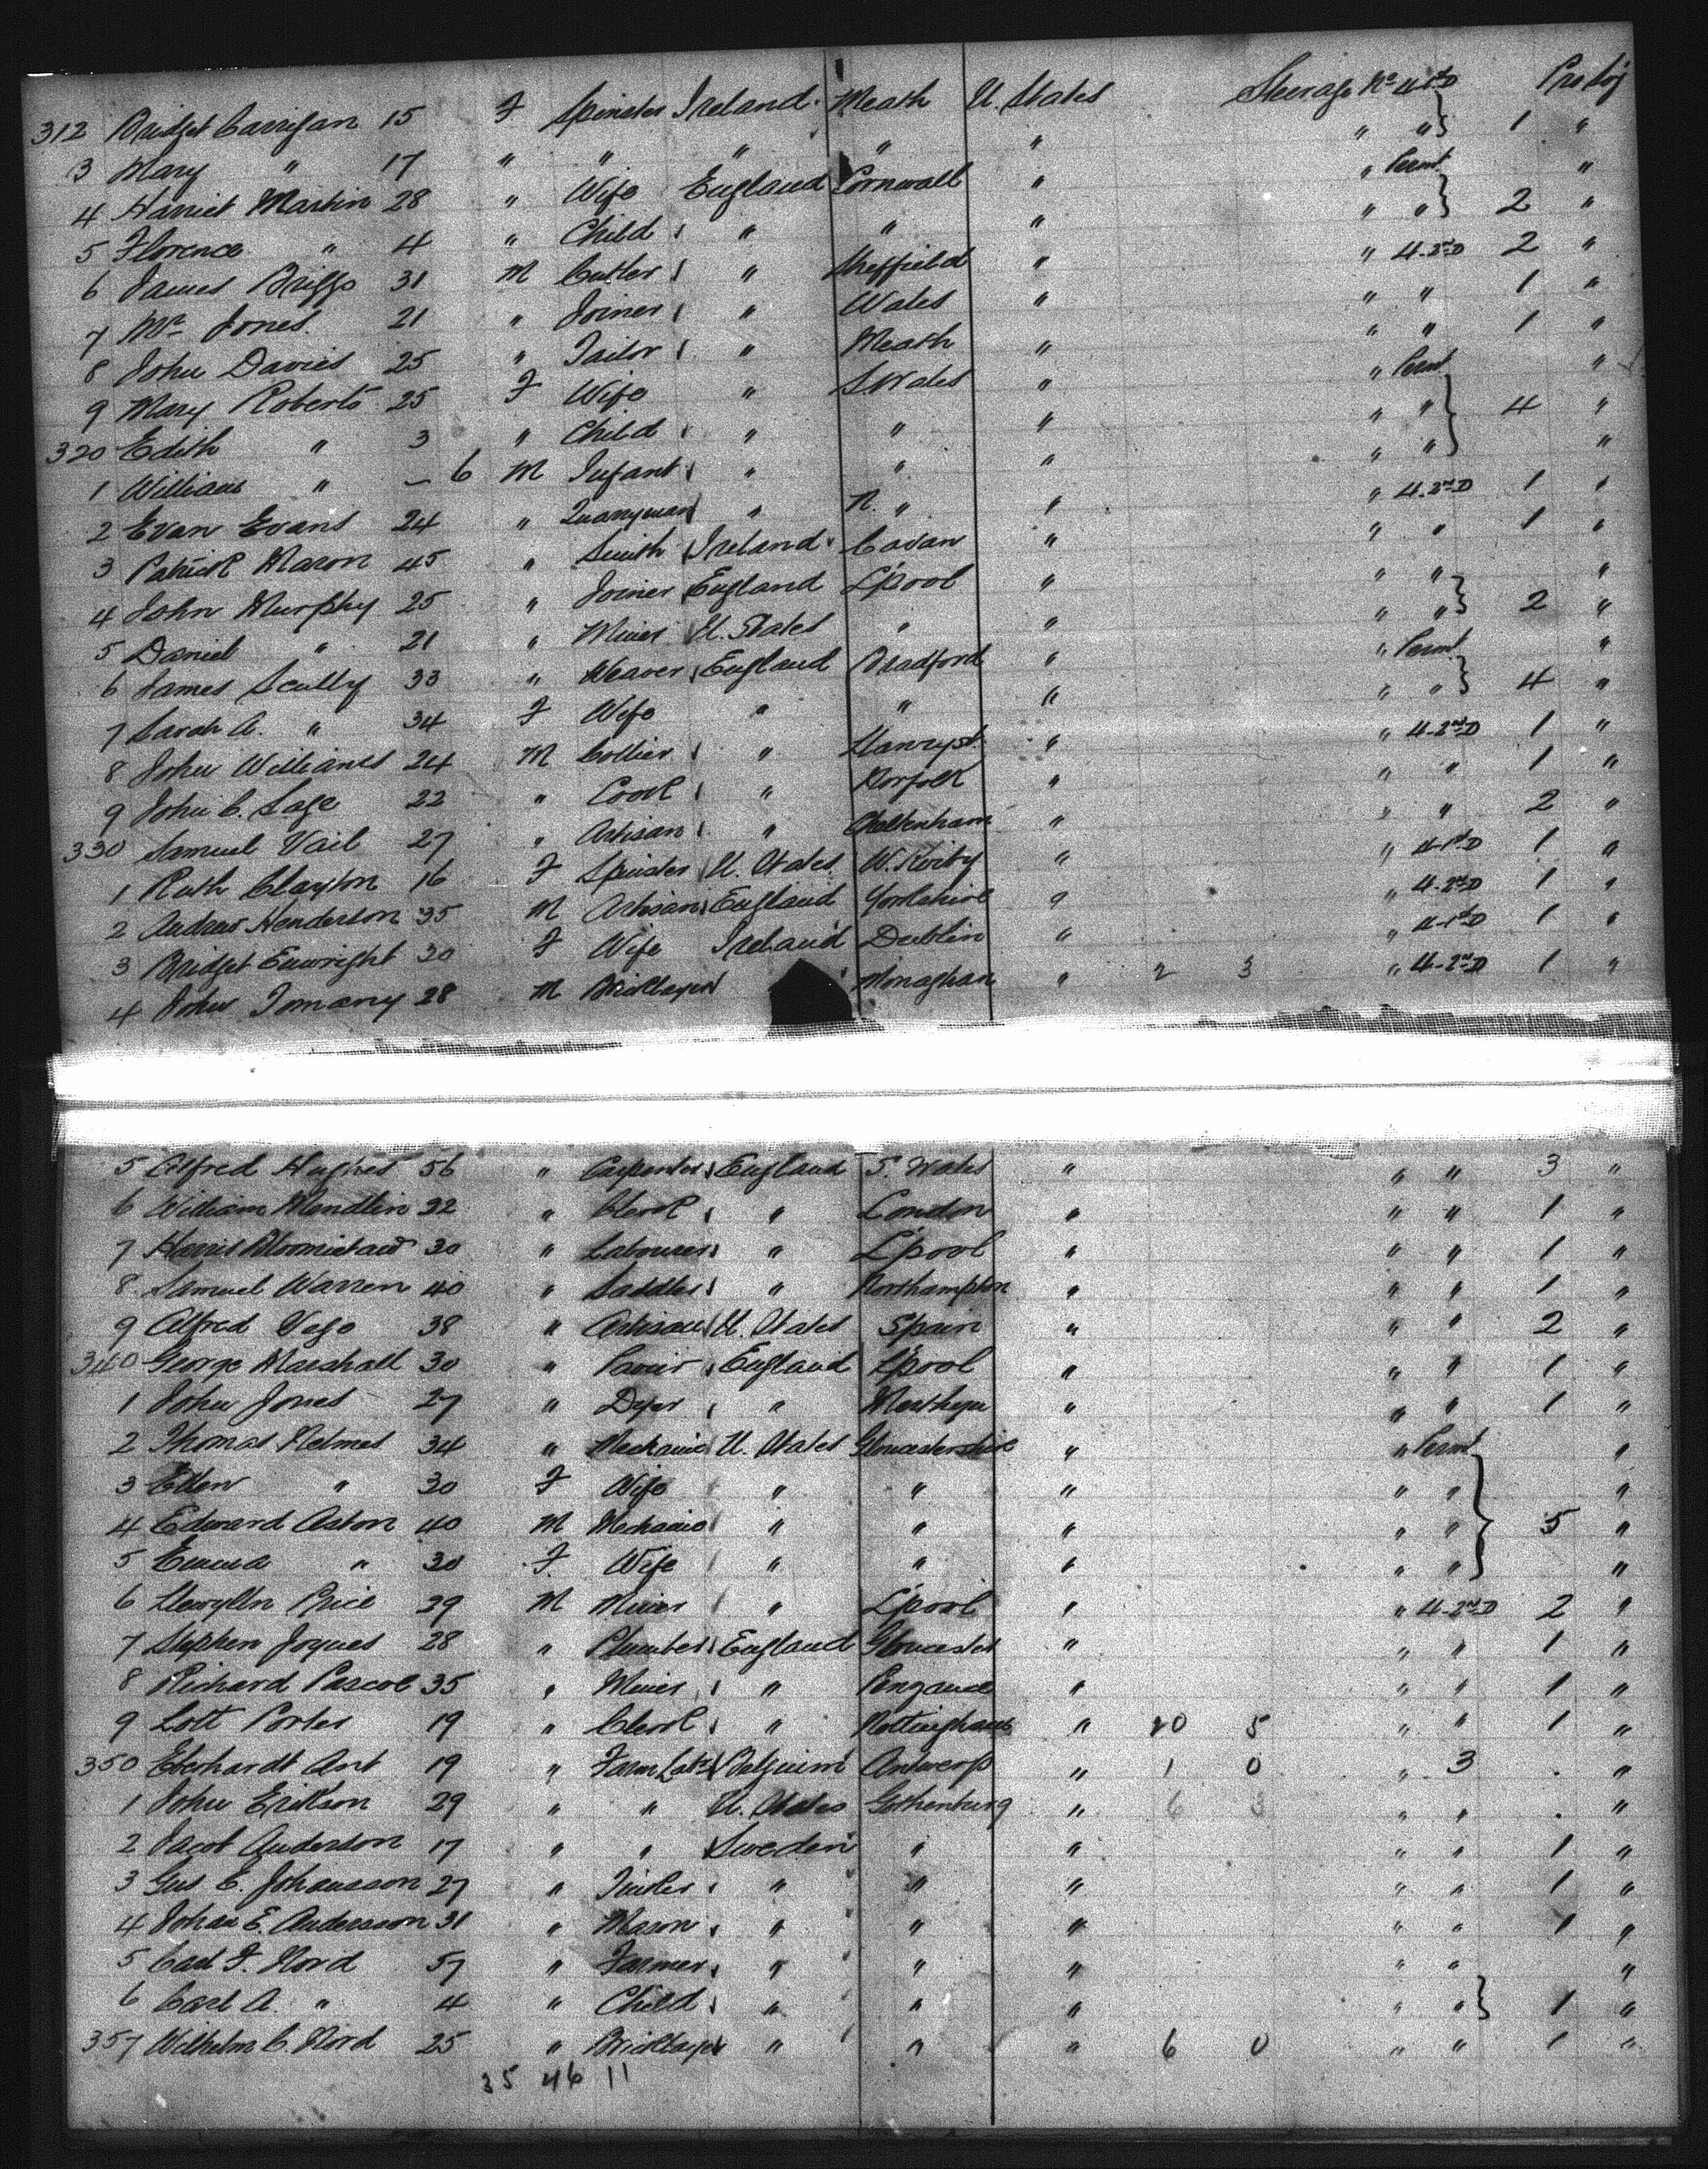 312 Bridget Carrigan 15 F Spinster Ireland Meath U. States Steerage No 4 1st D Pro Soj
3 Mary " 17 " " " " " " " } 1 "
4 Harriet Martin 28 " Wife England Cornwall " " Permt "
5 Florence " 4 " Child " " " " " } 2 "
6 James Briggs 31 M Cutler " Sheffield " " 4-2nd D 2 "
7 Mr Jones 21 " Joiner " Wales " " " 1 "
8 John Davies 25 " Tailor " Meath " " " 1 "
9 Mary Roberts 25 F Wife " S. Wales " " Permt "
320 Edith " 3 " Child " " " " " } 4 "
1 William " - 6 M Infant " " " " " "
2 Evan Evans 24 " Quarryman " N. " " " 4-2nd D 1 "
3 Patrick Mason 45 " Smith Ireland Cavan " " " 1 "
4 John Murphy 25 " Joiner England L'pool " " " "
5 Daniel " 21 " Miner U. States " " " " } 2 "
6 James Scully 33 " Weaver England Bradford " " Permt "
7 Sarah A. " 34 F Wife " " " " " } 4 "
8 John Williams 24 M Collier " Llanrypt " " 4-2nd D 1 "
9 John C. Sage 22 " Cook " Norfolk " " " 1 "
330 Samuel Vail 27 " Artisan " Cheltenham " " " 2 "
1 Ruth Clayton 16 F Spinster U. States W. Kirby " " 4-1st D 1 "
2 Andrew Henderson 35 M Artisan England Yorkshire " " 4-2nd D 1 "
3 Bridget Enwright 30 F Wife Ireland Dublin " " 4-1st D 1 "
4 John Tomany 28 M Bricklayer Monaghan " 2 3 " 4-2nd D 1 "
5 Alfred Hughes 56 " Carpenter England S. Wales " " " 3 "
6 William Mendlin 22 " Clerk " London " " " 1 "
7 Harris 30 " Labourer " L'pool " " " 1 "
8 Samuel Warren 40 " Saddler " Northampton " " " 1 "
9 Alfred Vego 38 " Artisan U. States Spain " " " 2 "
340 George Marshall 30 " England L'pool " " " 1 "
1 John Jones 27 " Dyer " Merthyr " " " 1 "
2 Thomas Helmes 34 " Mechanic U. States Gloucestershire " " Permt "
3 Ellen " 30 F Wife " " " " " "
4 Edward Aston 40 M Mechanic " " " " " } 5 "
5 Emma " 30 F Wife " " " " " "
6 Llewylln Price 29 M Miner " L'pool " " 4-2nd D 2 "
7 Stephen Joynes 28 " Plumber England Gloucester " " " 1 "
8 Richard Pascoe 35 " Miner " Penzance " " " 1 "
9 Lott Porter 19 " Clerk " Nottingham " 20 5 " " 1 "
350 Eberhardt Ant 19 " Farm Labr Belguim Antwerp " 1 0 " 3 . "
1 John Erikson 29 " " U. States Gothenburg " 6 3 " " . "
2 Jacob Anderson 17 " " Sweden " " " " 1 "
3 Gus E. Johansson 27 " " " " " " 1 "
4 Johan E. Andersson 31 " Mason " " " " " 1 "
5 Carl F. Nord 57 " Farmer " " " " " "
6 Carl A. " 4 " Child " " " " " } 1 "
357 Wilhelm C. Nord 25 " Bricklayer " " " 6 0 " " 1 "
35 46 11